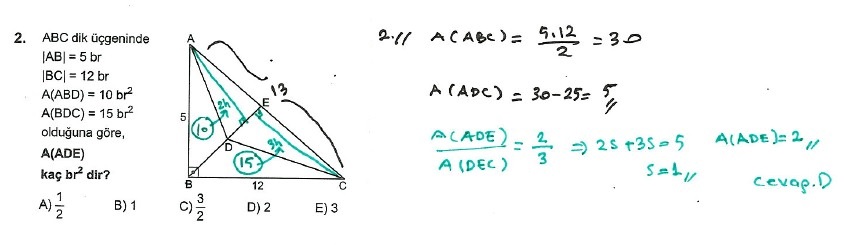 2. ABC dik üçgeninde
|AB| = 5 br
|BC| = 12 br
A(ABD) = 10 br²
A(BDC) = 15 br²
olduğuna göre,
A(ADE)
kaç br² dir?
A) 1/2 B) 1 C) 3/2 D) 2 E) 3
A
13
E
5
2h
10
D
3h
15
B
12
C
2.// A(ABC) = 5.12/2 = 30
A(ADC) = 30-25 = 5//
A(ADE)/A(DEC) = 2/3 ⇒ 2S+3S=5 A(ADE)=2//
S=1//
cevap.D